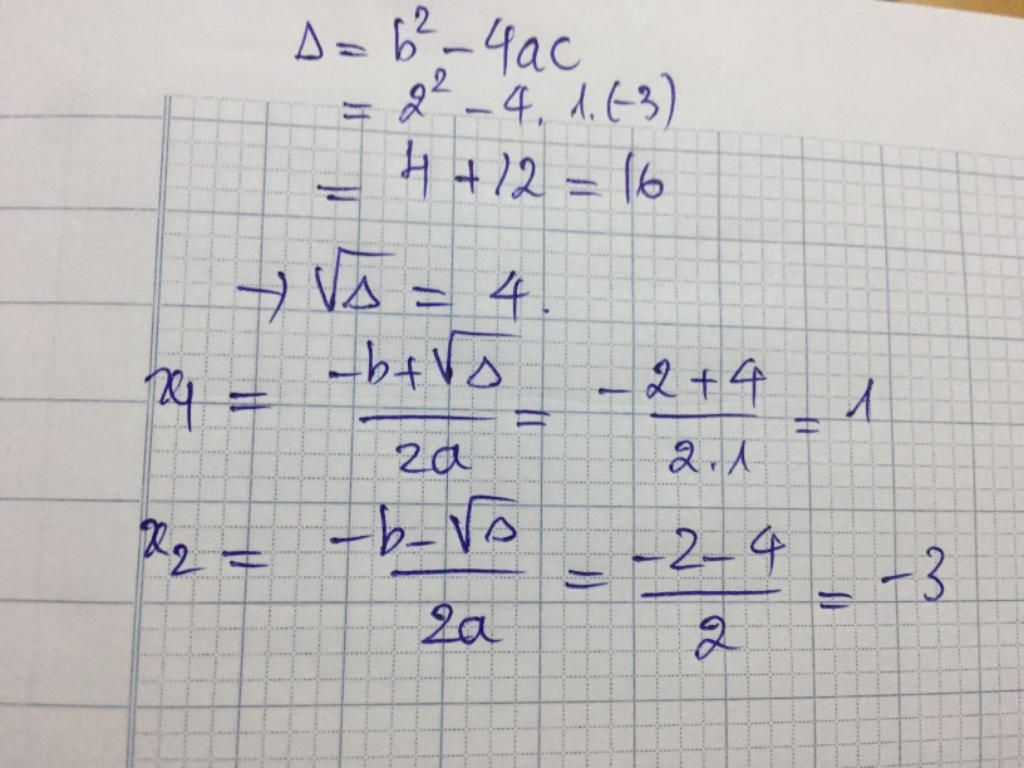 Δ = b² - 4ac
= 2² - 4. 1. (-3)
= 4 + 12 = 16
→ √Δ = 4.
x₁ = (-b + √Δ)/(2a) = (-2 + 4)/(2.1) = 1
x₂ = (-b - √Δ)/(2a) = (-2 - 4)/2 = -3